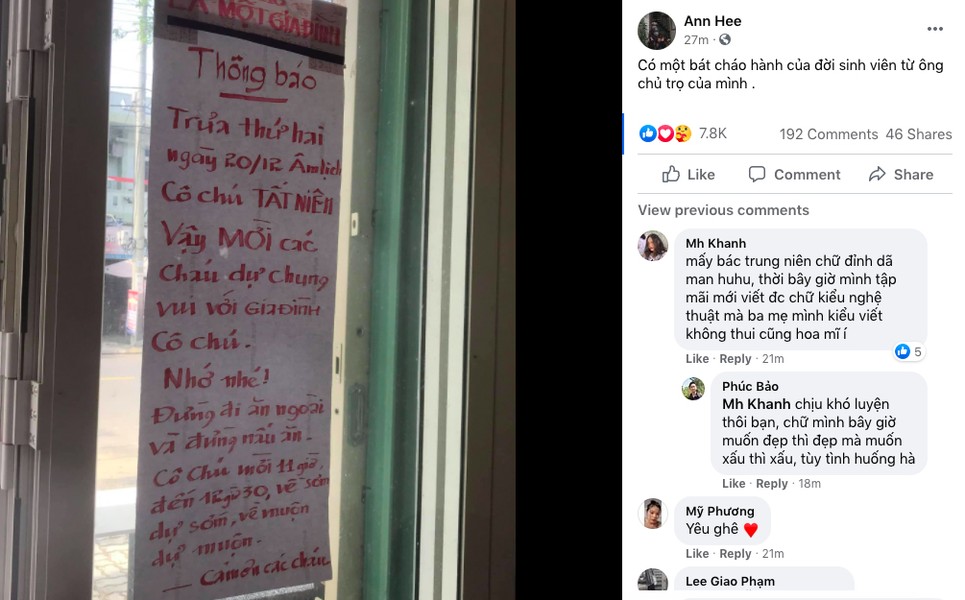 LÀ MỘT GIA ĐÌNH
Thông báo
Trưa thứ hai
ngày 20/12 Âm lịch
Cô chú TẤT NIÊN
Vậy MỜI các
cháu dự chung
vui với GIA ĐÌNH
Cô chú.
Nhớ nhé!
Đừng đi ăn ngoài
và đừng nấu ăn.
Cô Chú mời 11 giờ,
đến 12 giờ 30, về sớm
dự sớm, về muộn
dự muộn.
Cảm ơn các cháu
Ann Hee
27m ·
Có một bát cháo hành của đời sinh viên từ ông
chủ trọ của mình .
7.8K
192 Comments 46 Shares
Like Comment Share
View previous comments
Mh Khanh
mấy bác trung niên chữ đỉnh dã
man huhu, thời bây giờ mình tập
mãi mới viết đc chữ kiểu nghệ
thuật mà ba mẹ mình kiểu viết
không thui cũng hoa mĩ í
5
Like · Reply · 21m
Phúc Bảo
Mh Khanh chịu khó luyện
thôi bạn, chữ mình bây giờ
muốn đẹp thì đẹp mà muốn
xấu thì xấu, tùy tình huống hà
Like · Reply · 18m
Mỹ Phương
Yêu ghê
Like · Reply · 21m
Lee Giao Phạm